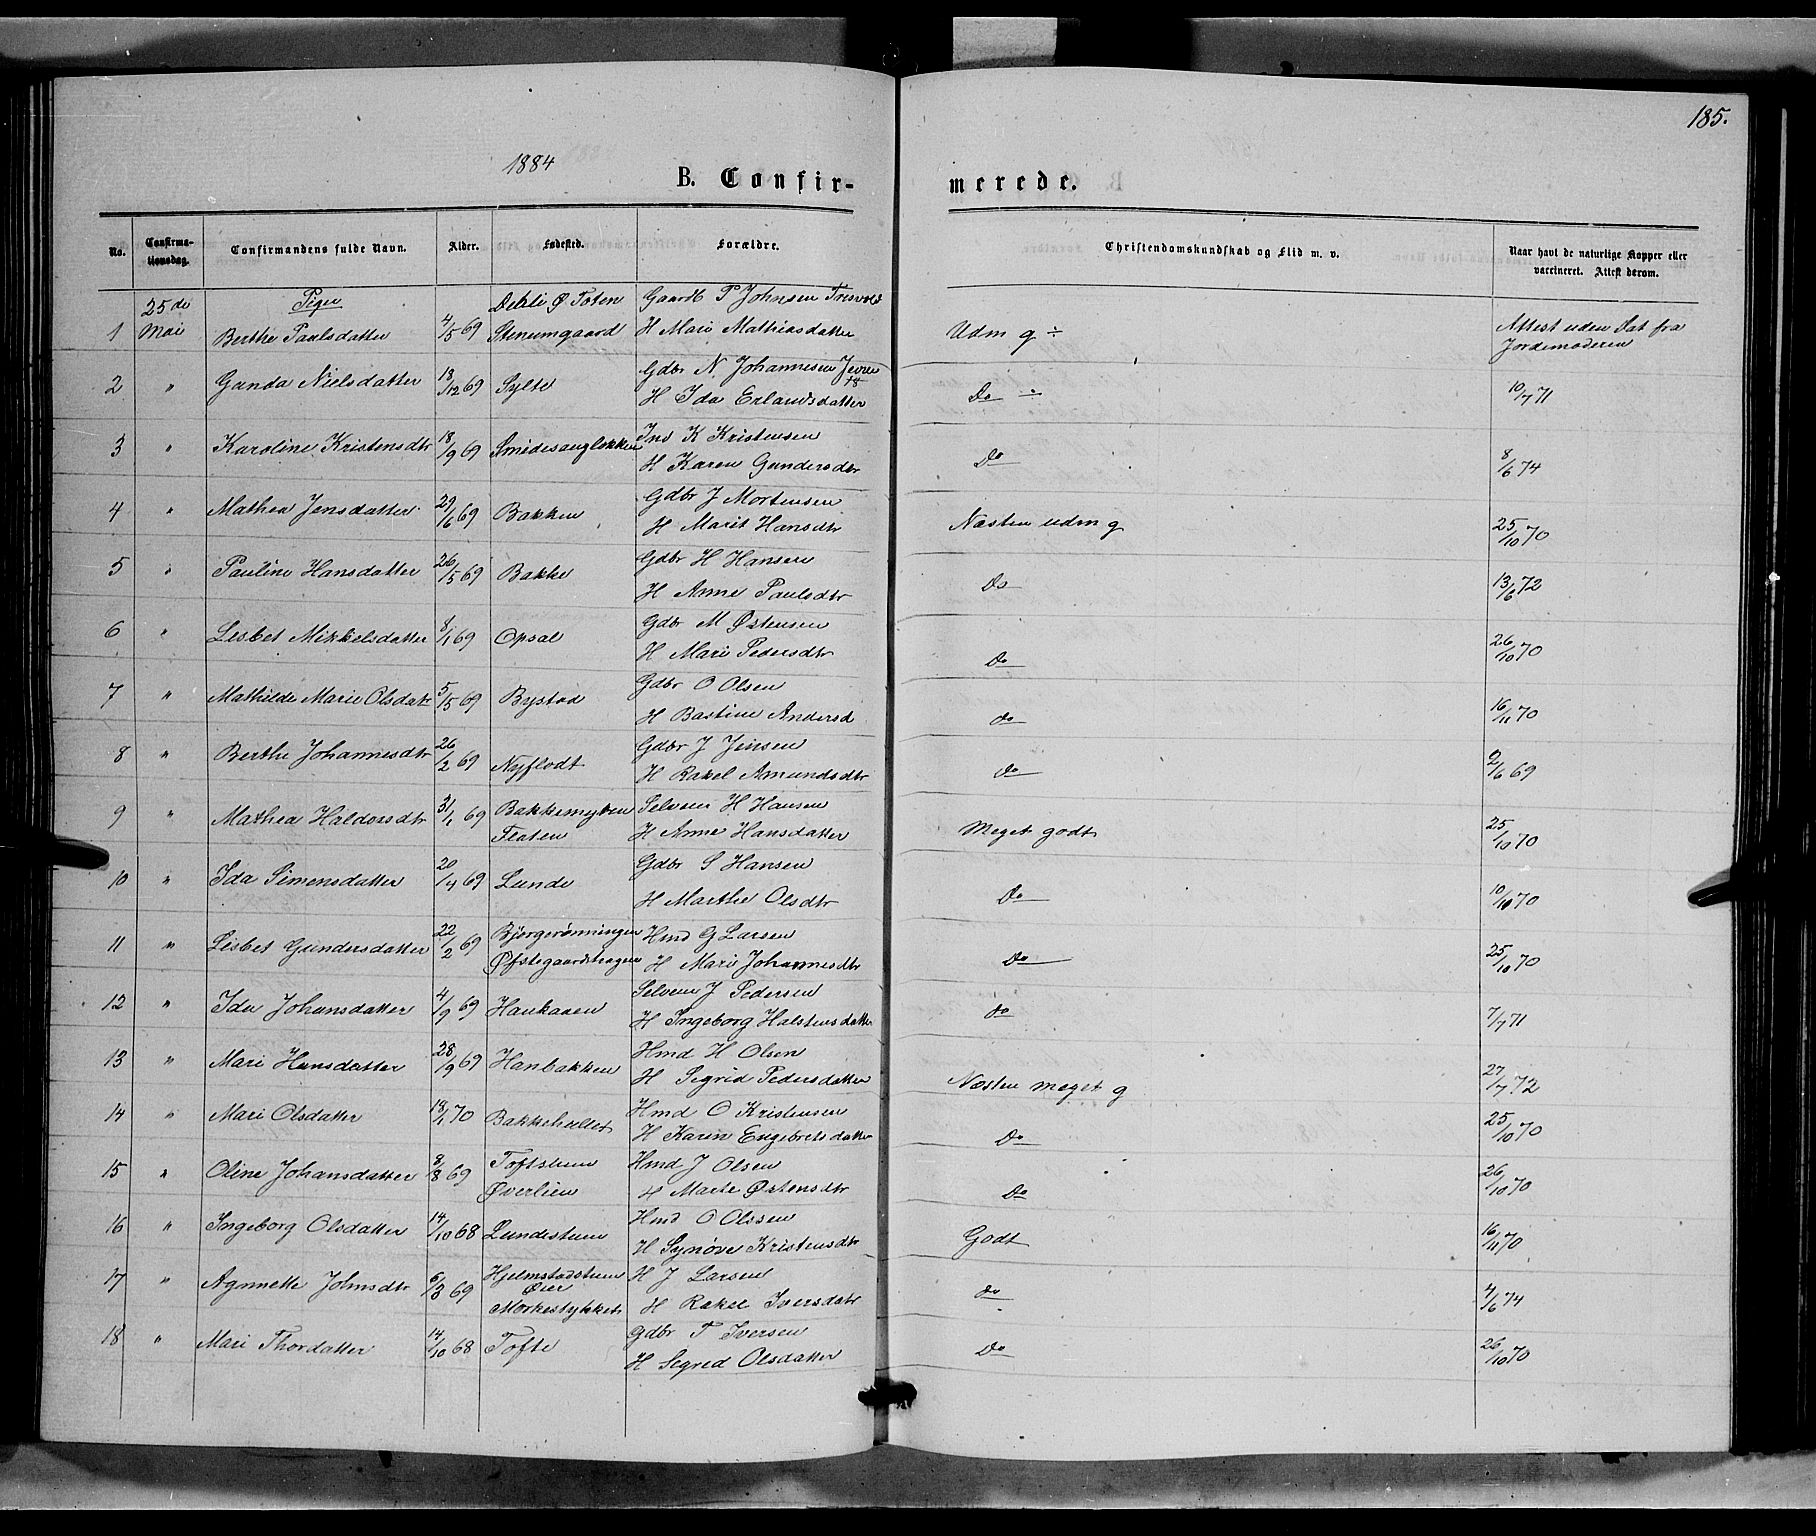 185.
1884
B. Confir-
merede.
No.
Confirma-
tionsdag.
Confirmandens fulde Navn.
Alder.
Fødested.
Forældre.
Christendomskundskab og Flid m. v.
Naar havt de naturlige Kopper eller
vaccineret. Attest derom.
25de Piger Ø Toten Gaardb P Johnsen
1 Mai Berthe Paulsdatter 4/5 69 Steneumgaard H Mari Mathiasdatter Udm g ÷ Attest uden Dat fra
Jordemoderen
2 " Ganda Nielsdatter 18/12 69 Sylte Gdbr N. Johannesen
H Ida Erlandsdatter Do ÷ 10/7 71
3 " Karoline Kristensdtr 18/9 69 Smidesangløkken Ind K Kristensen
H Karen Gundersdtr Do 8/6 74
4 " Mathea Jensdatter 29/6 69 Bakken Gdbr J Mortensen
H Marit Hansdtr Næsten udm g 25/10 70
5 " Pauline Hansdatter 26/5 69 Bakke Gdbr H Hansen
H Anne Paulsdtr Do 13/6 72
6 " Lisbet Mikkelsdatter 8/1 69 Opsal Gdbr M Østensen
H Mari Pedersdtr Do 26/10 70
7 " Mathilde Marie Olsdatr 5/5 69 Bystad Gdbr O Olsen
H Bastine Andersd do 16/11 70
8 " Berthe Johannesdtr 26/2 69 Nyflodt Gdbr J Jensen
H Rakel Amundsdtr do 2/6 69
9 " Mathea Haldorsdtr 31/1 69 Bakkemyken Selveier H Hansen
Flaten H Anne Hansdatter Meget godt 25/10 70
10 " Ida Simensdatter 20/4 69 Lunde Gdbr S Hansen
H Marthe Olsdtr Do 10/10 70
11 " Lisbet Gundersdatter 22/2 69 Bjørgerønningen Hmd G Larsen
Øfstegaardshagen H Mari Johannesdtr Do 25/10 70
12 " Ida Johansdatter 4/9 69 Haukaaen Selveier J Pedersen
H Ingeborg Halstensdatter do 7/7 71
13 " Mari Hansdatter 28/9 69 Hanbakken Hmd H Olsen
H Sigrid Pedersdatter Næsten meget g 27/7 72
14 " Mari Olsdatter 18/1 70 Bakkeholtet Hmd O Kristensen
H Karin Engebretsdatter Do 25/10 70
15 " Oline Johansdatter 8/8 69 Toftstuen Hmd J Olsen
Øverlien H Marte Østensdtr Do 26/10 70
16 " Ingeborg Olsdatter 14/10 68 Lundestuen Hmd O Olssen
H Synøve Kristensdtr Godt 16/11 70
17 " Agnnette Johnsdtr 6/3 69 Hjelmstadstuen H J Larsen
Øier
Mørkestykket H Rakel Iversdatr do 4/6 74
18 " Mari Thordatter 14/10 68 Tofte Gdbr T Iversen
H Segred Olsdatter Do 26/10 70